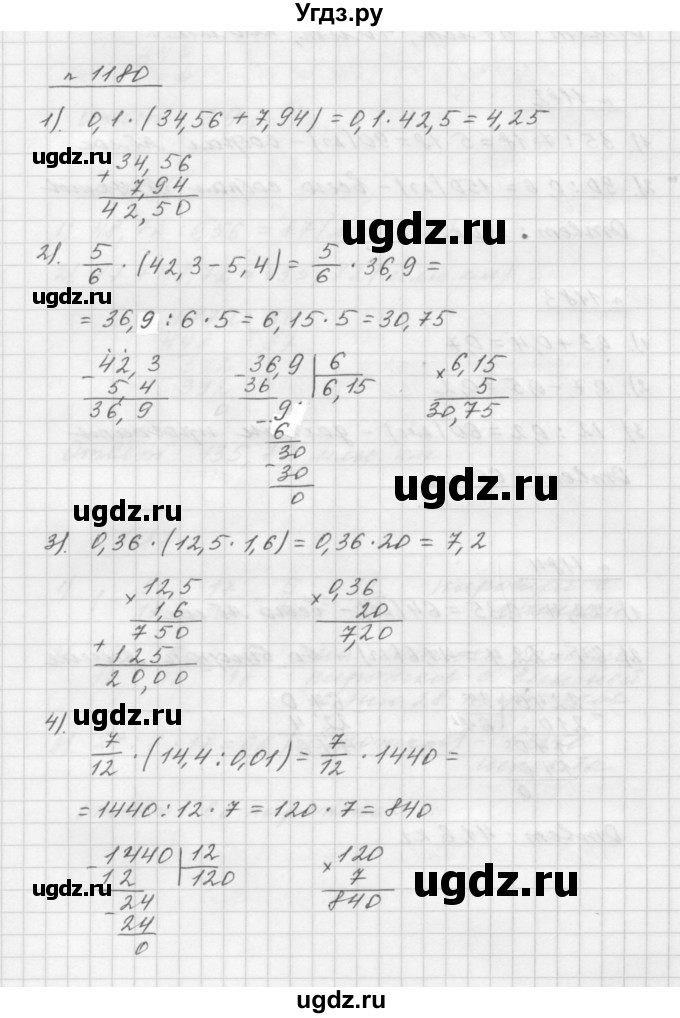 Угдз.ру
n 1180
1). 0,1 · (34,56 + 7,94) = 0,1 · 42,5 = 4,25
ugdz.ru
+ 34,56
7,94
42,50
ugdz.ru
2). 5/6 · (42,3 - 5,4) = 5/6 · 36,9 =
= 36,9 : 6 · 5 = 6,15 · 5 = 30,75
- 42,3
5,4
36,9
- 36,9 | 6
36 | 6,15
- 9
6
- 30
30
0
× 6,15
5
30,75
ugdz.ru
ugdz.ru
3). 0,36 · (12,5 · 1,6) = 0,36 · 20 = 7,2
× 12,5
1,6
750
+ 125
20,00
× 0,36
20
7,20
ugdz.ru
ugdz.ru
4). 7/12 · (14,4 : 0,01) = 7/12 · 1440 =
= 1440 : 12 · 7 = 120 · 7 = 840
- 1440 | 12
12 | 120
- 24
24
0
× 120
7
840
ugdz.ru
ugdz.ru
ugdz.ru